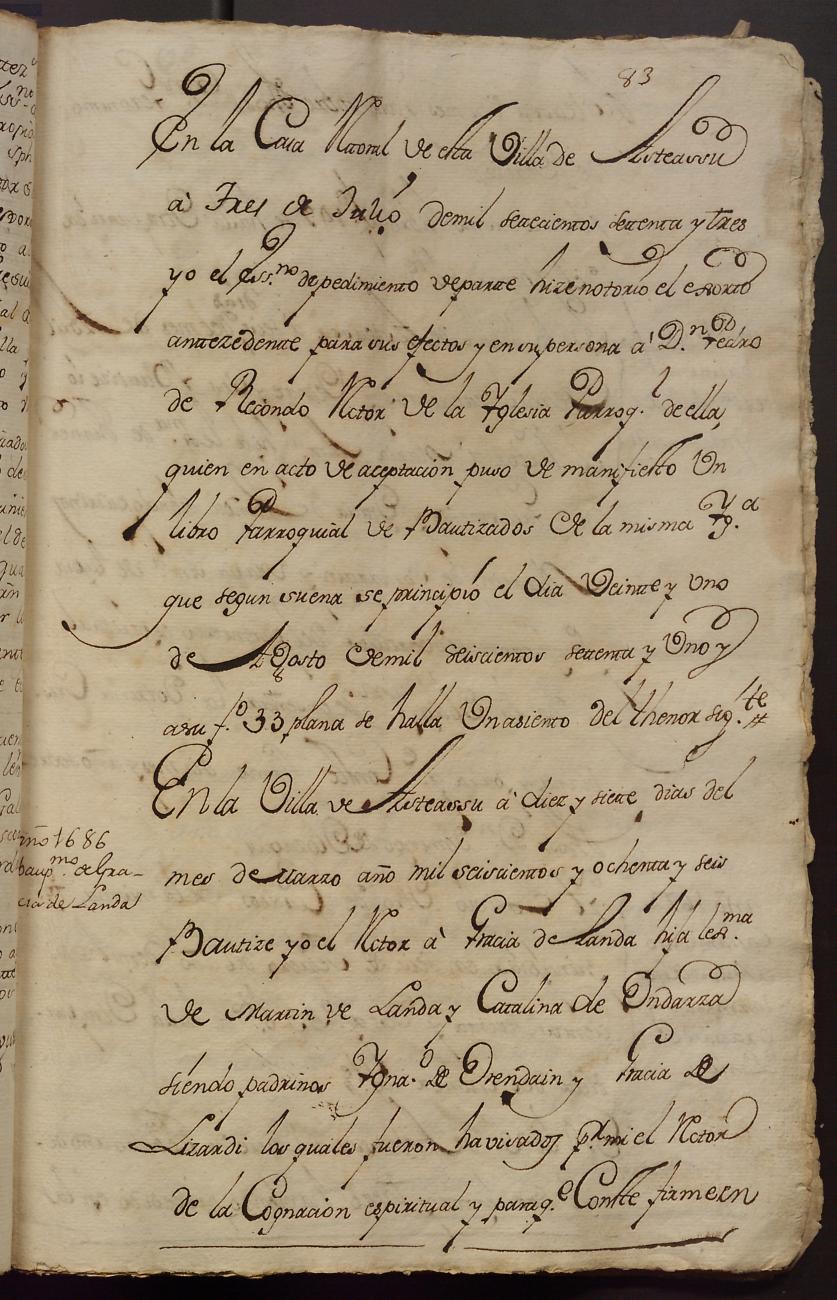 83
En la Casa Rtoral de esta Villa de Asteassu
à Tres de Julio demil setecientos setenta y tres
yo el Ess.no de pedimiento de parte hize notorio el exorto
antezedente para sus efectos y en su persona a' D.n Pedro
de Recondo Rctor de la Yglesia Parroq.l de ella,
quien en acto de aceptacion puso de manifiesto Un
libro Parroquial de Bautizados de la misma Yg.a
que segun suena se principió el dia Veinte y Uno
de Agosto demil seiscientos setenta y Uno y
asu f.o 33 plana se halla Un asiento del thenor sig.te
En la Villa de Asteassu a diez y siete dias del
año 1686
baup.mo de Gra-
cia de Landa
mes de Marzo año mil seiscientos y ochenta y seis
Bautize yo el Rctor à Gracia de Landa hija lex.ma
de Martin de Landa y Catalina de Ondarza
siendo padrinos Ygna.o de Orendain y Gracia de
Lizardi los quales fueron havisados p.r mi el Rctor
de la Cognacion espiritual y paraq.e Conste firme en